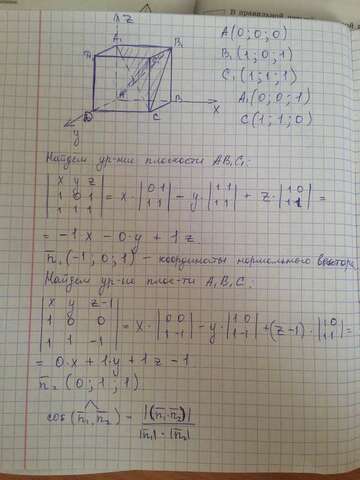 В правильной
z
A₁
B₁
D₁
A
B
x
D
C
y
A(0;0;0)
B₁(1;0;1)
C₁(1;1;1)
A₁(0;0;1)
C(1;1;0)
Найдем ур-ние плоскости AB₁C₁:
|x y z|
|1 0 1|
|1 1 1|
= x·|0 1; 1 1| - y·|1 1; 1 1| + z·|1 0; 1 1| =
= -1·x - 0·y + 1z.
n̄₁(-1;0;1) – координаты нормального вектора.
Найдем ур-ие плос-ти A₁B₁C.
|x y z-1|
|1 0 0|
|1 1 -1|
= x·|0 0; 1 -1| - y·|1 0; 1 -1| + (z-1)·|1 0; 1 1| =
= 0·x + 1·y + 1z - 1
n̄₂(0;1;1).
cos(n̄₁,n̄₂) = |(n̄₁·n̄₂)| / |n̄₁|·|n̄₂|